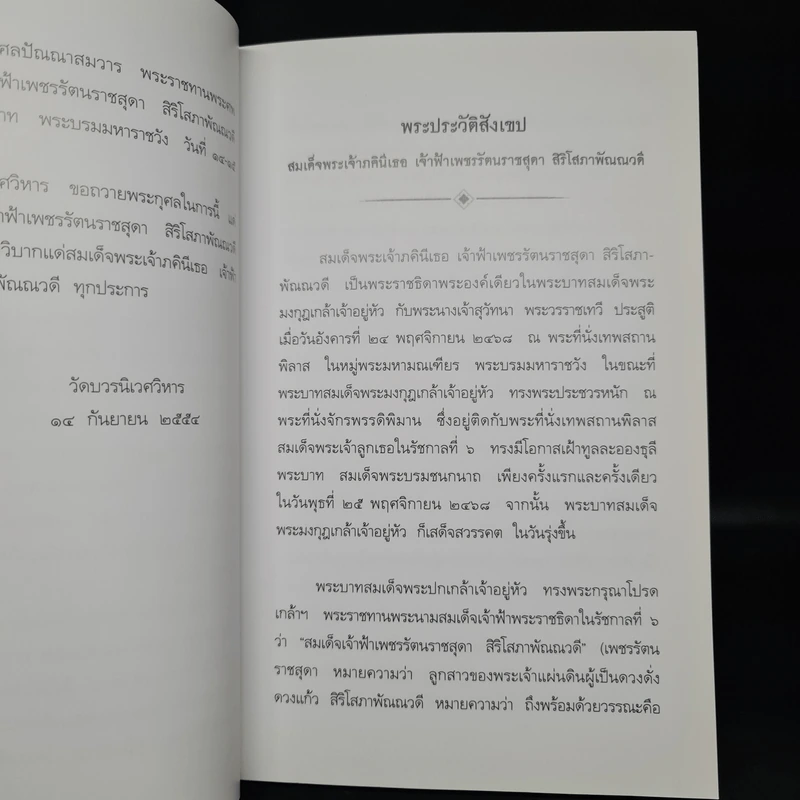 ศลปัณณาสมวาร พระราชทานพระศพ
ฟ้าเพชรรัตนราชสุดา สิริโสภาพัณณวดี
าท พระบรมมหาราชวัง วันที่ ๑๔-๑๕
ศวิหาร ขอถวายพระกุศลในการนี้ แด่
ฟ้าเพชรรัตนราชสุดา สิริโสภาพัณณวดี
วิบากแด่สมเด็จพระเจ้าภคินีเธอ เจ้าฟ้า
พัณณวดี ทุกประการ
วัดบวรนิเวศวิหาร
๑๔ กันยายน ๒๕๕๔
พระประวัติสังเขป
สมเด็จพระเจ้าภคินีเธอ เจ้าฟ้าเพชรรัตนราชสุดา สิริโสภาพัณณวดี
สมเด็จพระเจ้าภคินีเธอ เจ้าฟ้าเพชรรัตนราชสุดา สิริโสภา-
พัณณวดี เป็นพระราชธิดาพระองค์เดียวในพระบาทสมเด็จพระ
มงกุฎเกล้าเจ้าอยู่หัว กับพระนางเจ้าสุวัทนา พระวรราชเทวี ประสูติ
เมื่อวันอังคารที่ ๒๔ พฤศจิกายน ๒๔๖๘ ณ พระที่นั่งเทพสถาน
พิลาส ในหมู่พระมหามณเฑียร พระบรมมหาราชวัง ในขณะที่
พระบาทสมเด็จพระมงกุฎเกล้าเจ้าอยู่หัว ทรงพระประชวรหนัก ณ
พระที่นั่งจักรพรรดิพิมาน ซึ่งอยู่ติดกับพระที่นั่งเทพสถานพิลาส
สมเด็จพระเจ้าลูกเธอในรัชกาลที่ ๖ ทรงมีโอกาสเฝ้าทูลละอองธุลี
พระบาท สมเด็จพระบรมชนกนาถ เพียงครั้งแรกและครั้งเดียว
ในวันพุธที่ ๒๕ พฤศจิกายน ๒๔๖๘ จากนั้น พระบาทสมเด็จ
พระมงกุฎเกล้าเจ้าอยู่หัว ก็เสด็จสวรรคต ในวันรุ่งขึ้น
พระบาทสมเด็จพระปกเกล้าเจ้าอยู่หัว ทรงพระกรุณาโปรด
เกล้าฯ พระราชทานพระนามสมเด็จเจ้าฟ้าพระราชธิดาในรัชกาลที่ ๖
ว่า "สมเด็จเจ้าฟ้าเพชรรัตนราชสุดา สิริโสภาพัณณวดี" (เพชรรัตน
ราชสุดา หมายความว่า ลูกสาวของพระเจ้าแผ่นดินผู้เป็นดวงดั่ง
ดวงแก้ว สิริโสภาพัณณวดี หมายความว่า ถึงพร้อมด้วยวรรณะคือ